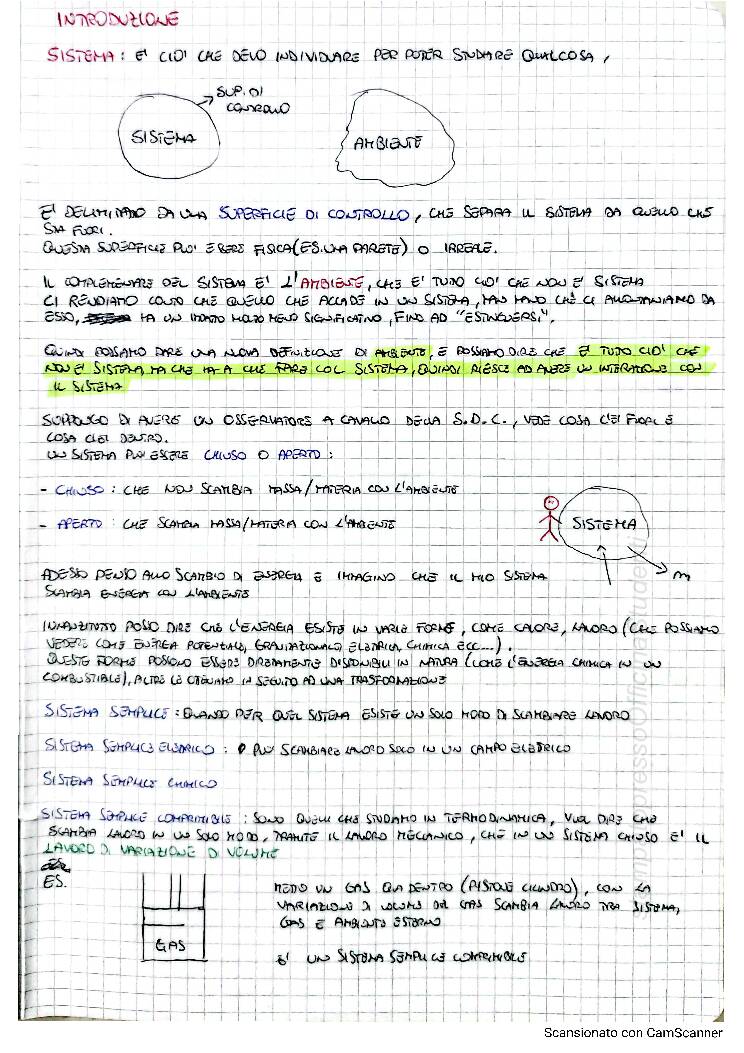 INTRODUZIONE
SISTEMA: E' CIO' CHE DEVO INDIVIDUARE PER POTER STUDIARE QUALCOSA,
SUP. DI
CONTROLLO
SISTEMA
AMBIENTE
E' DELIMITATO DA UNA SUPERFICIE DI CONTROLLO, CHE SEPARA IL SISTEMA DA QUELLO CHE
STA FUORI.
QUESTA SUPERFICIE PUO' ESSERE FISICA (ES. UNA PARETE) O IRREALE.
IL COMPLEMENTARE DEL SISTEMA E' L'AMBIENTE, CHE E' TUTTO CIO' CHE NON E' SISTEMA
CI RENDIAMO CONTO CHE QUELLO CHE ACCADE IN UN SISTEMA, MAN MANO CHE CI ALLONTANIAMO DA
ESSO, HA UN IMPATTO MOLTO MENO SIGNIFICATIVO, FINO AD "ESTINGUERSI".
QUINDI POSSIAMO DARE UNA NUOVA DEFINIZIONE DI AMBIENTE, E POSSIAMO DIRE CHE E' TUTTO CIO' CHE
NON E' SISTEMA MA CHE HA A CHE FARE COL SISTEMA, QUINDI RIESCE AD AVERE UN INTERAZIONE CON
IL SISTEMA
SUPPONGO DI AVERE UN OSSERVATORE A CAVALLO DELLA S.D.C., VEDE COSA C'E' FUORI E
COSA C'E' DENTRO.
UN SISTEMA PUO' ESSERE CHIUSO O APERTO:
- CHIUSO: CHE NON SCAMBIA MASSA/MATERIA CON L'AMBIENTE
- APERTO: CHE SCAMBIA MASSA/MATERIA CON L'AMBIENTE
SISTEMA
m
ADESSO PENSO ALLO SCAMBIO DI ENERGIA E IMMAGINO CHE IL MIO SISTEMA
SCAMBIA ENERGIA CON L'AMBIENTE
INNANZITUTTO POSSO DIRE CHE L'ENERGIA ESISTE IN VARIE FORME, COME CALORE, LAVORO (CHE POSSIAMO
VEDERE COME ENERGIA POTENZIALE, GRAVITAZIONALE, ELETTRICA, CHIMICA ECC...).
QUESTE FORME POSSONO ESSERE DIRETTAMENTE DISPONIBILI IN NATURA (COME L'ENERGIA CHIMICA IN UN
COMBUSTIBILE), ALTRE LE OTTENIAMO IN SEGUITO AD UNA TRASFORMAZIONE
SISTEMA SEMPLICE: QUANDO PER QUEL SISTEMA ESISTE UN SOLO MODO DI SCAMBIARE LAVORO
SISTEMA SEMPLICE ELETTRICO: PUO' SCAMBIARE LAVORO SOLO IN UN CAMPO ELETTRICO
SISTEMA SEMPLICE CHIMICO
SISTEMA SEMPLICE COMPRIMIBILE: SONO QUELLI CHE STUDIAMO IN TERMODINAMICA, VUOL DIRE CHE
SCAMBIA LAVORO IN UN SOLO MODO, TRAMITE IL LAVORO MECCANICO, CHE IN UN SISTEMA CHIUSO E' IL
LAVORO DI VARIAZIONE DI VOLUME
ES.
GAS
METTO UN GAS QUA DENTRO (PISTONE CILINDRO), CON LA
VARIAZIONE DI VOLUME DEL GAS SCAMBIA LAVORO TRA SISTEMA,
GAS E AMBIENTE ESTERNO
E' UN SISTEMA SEMPLICE COMPRIMIBILE
Scansionato con CamScanner